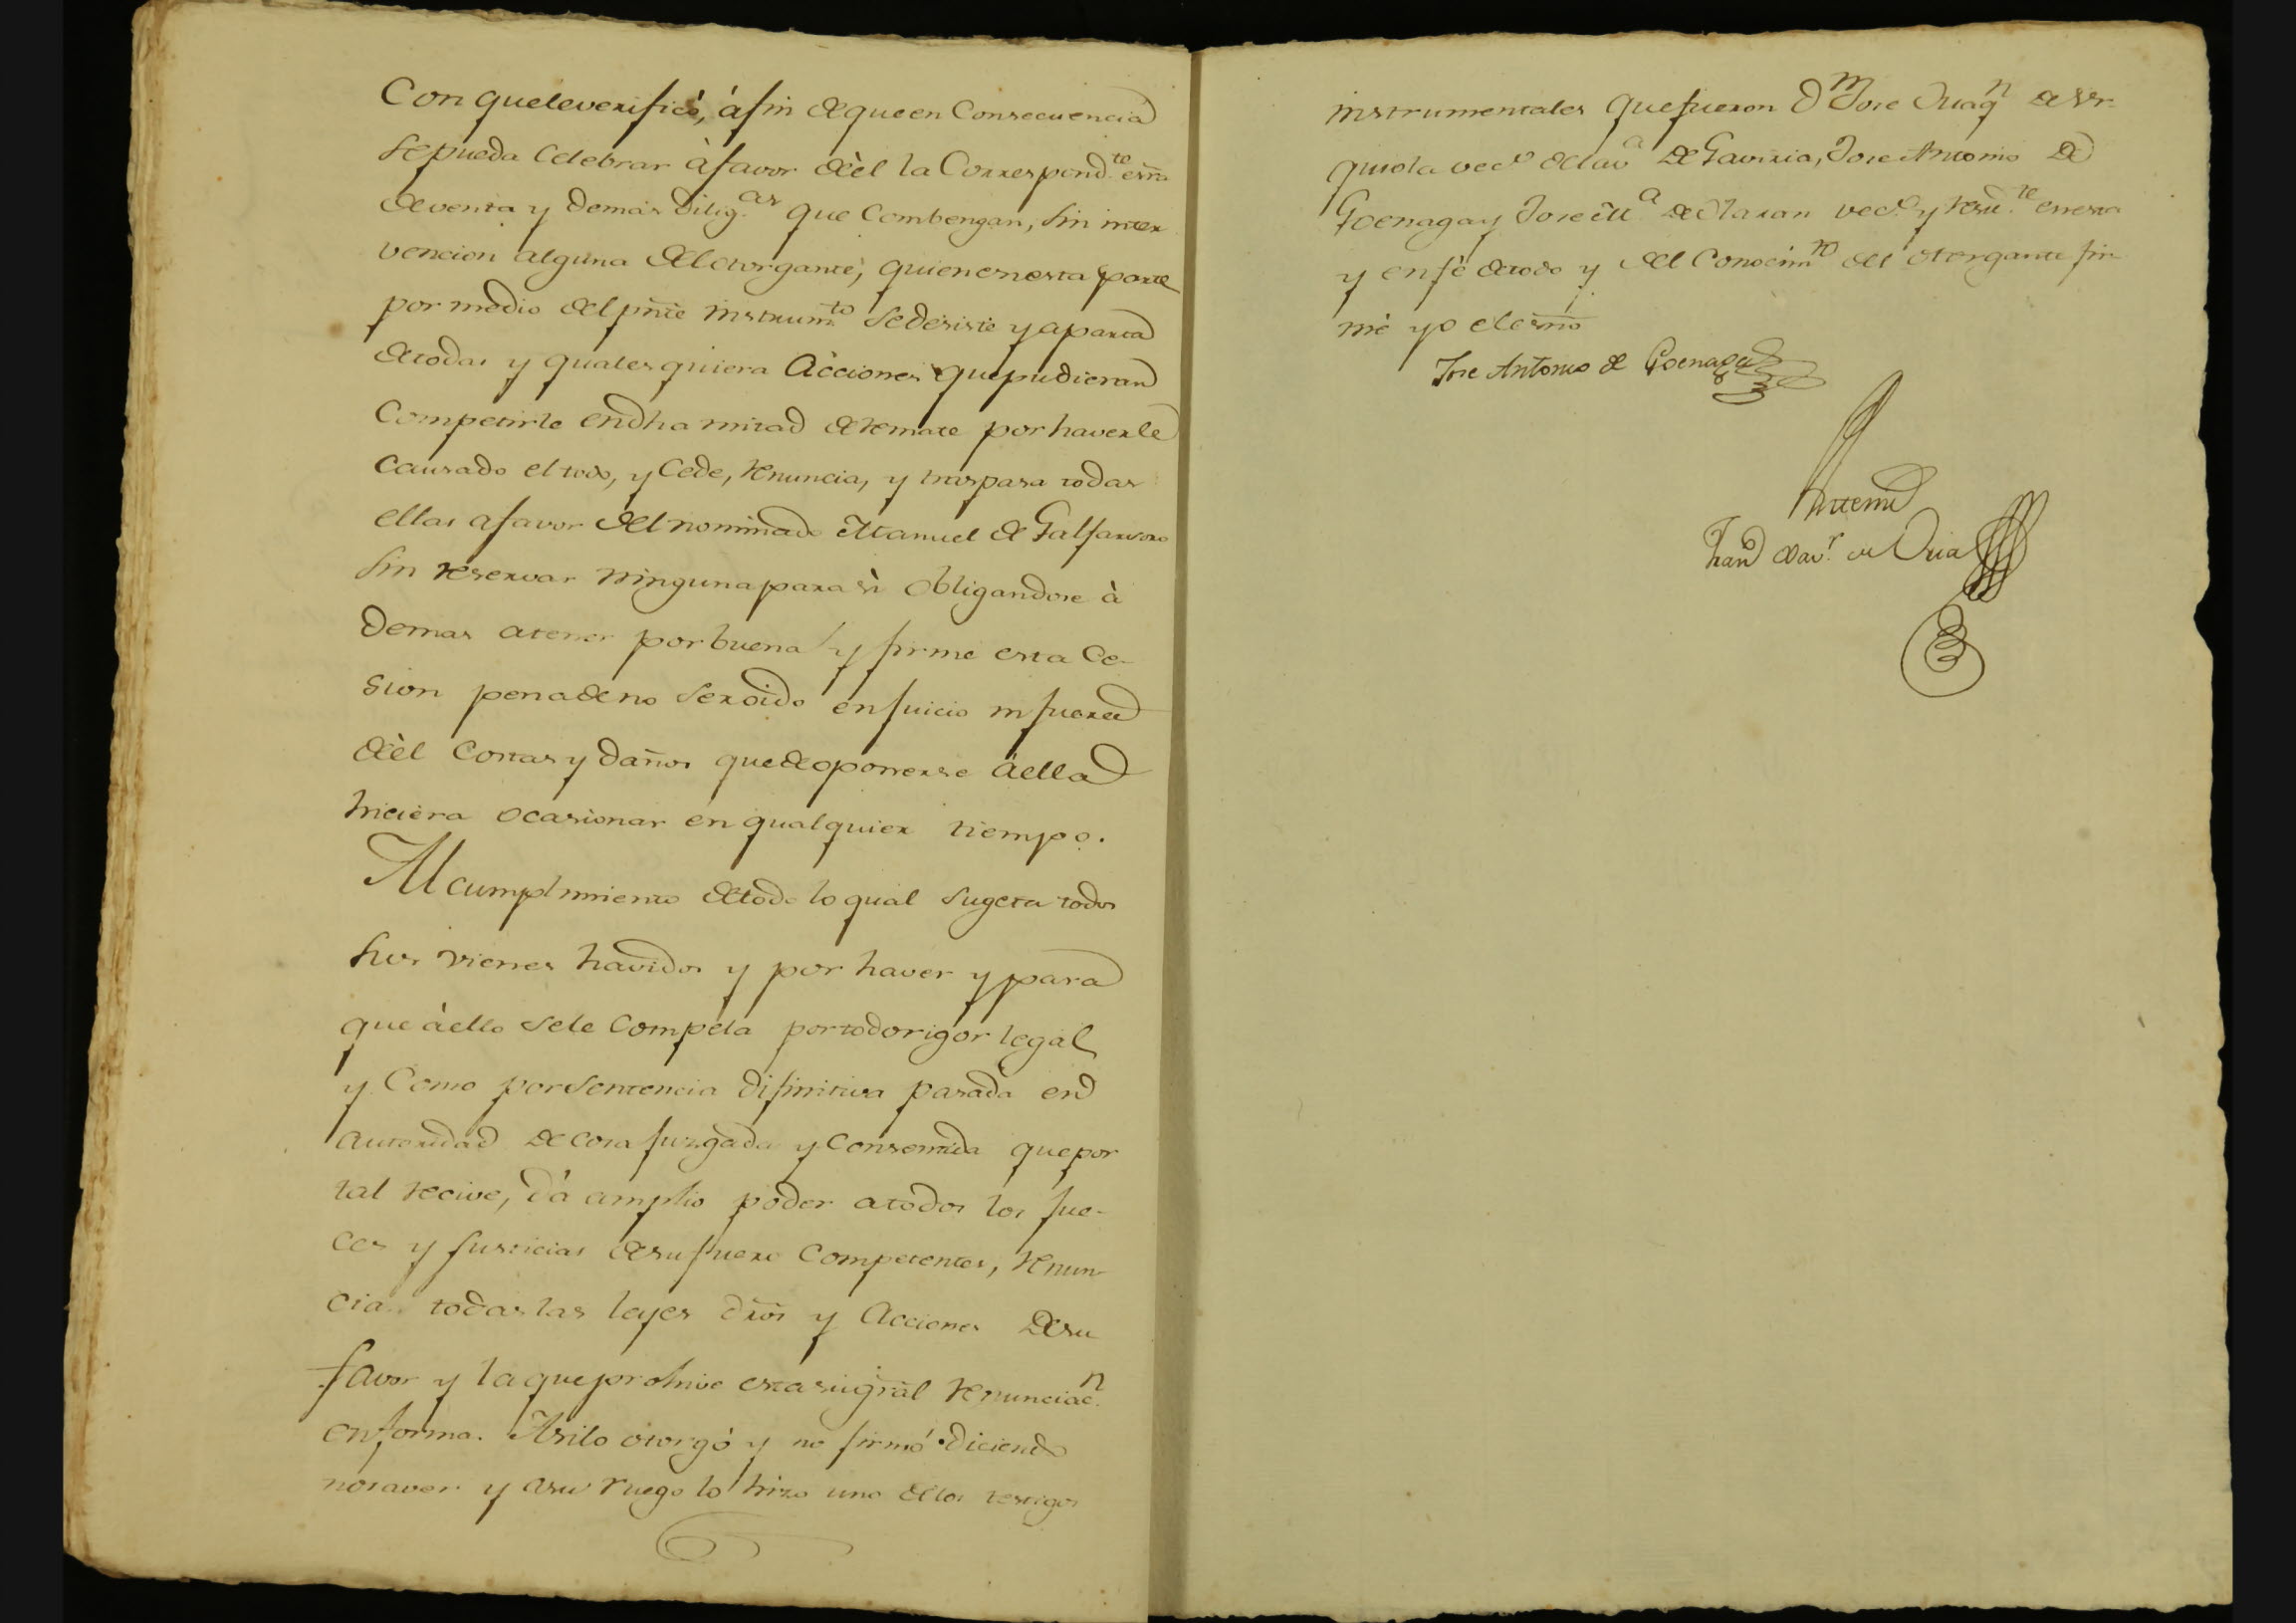 Con que le verificó, à fin de que en Consecuencia
se pueda Celebrar à favor de èl la Correspond.te esrra
de venta y demàs Dilig.as que Combengan, sin inter
vencion alguna del otorgante, quien en esta parte
por medio del pnte instrum.to se desiste y aparta
de todas y quales quiera Acciones que pudieran
Competirle en dha mitad de remate por haverle
Causado el todo, y Cede, renuncia, y traspasa todas
ellas a favor del nominado Manuel de Galfarsoro
sin reservar ninguna para sì Obligandose à
demas a tener por buena y firme esta Ce-
sion pena de no ser oido en Juicio ni fuera
de èl Costas y daños que de oponerse à ella
hiciera ocasionar en qualquier tiempo.
Al cumplimiento de todo lo qual sugeta todos
sus vienes havidos y por haver y para
que à ello se le Compela por todo rigor legal
y Como por Sentencia difinitiva pasada en
autoridad de cosa Juzgada y Consentida que por
tal recive, dà amplio poder a todos los Jue-
ces y Justicias de su fuero Competentes, renun
cia todas las leyes dros y Acciones de su
favor y la que prohive esta sugral renunciac.n
en forma. Asi lo otorgó y no firmó diciendo
no saver y a su ruego lo hizo uno de los testigos
instrumentales que fueron Dn Jose Juaq.n de Ur-
quiola vec.o de la v.a de Gaviria, Jose Antonio de
Goenaga y Jose M.a de Olaran vec.s y resid.te en esta
y en fè de todo y del Conocim.to del otorgante fir
mè yo el esno
Jose Antonio de Goenaga
Antemi
Fran.co Xav.r de Oria